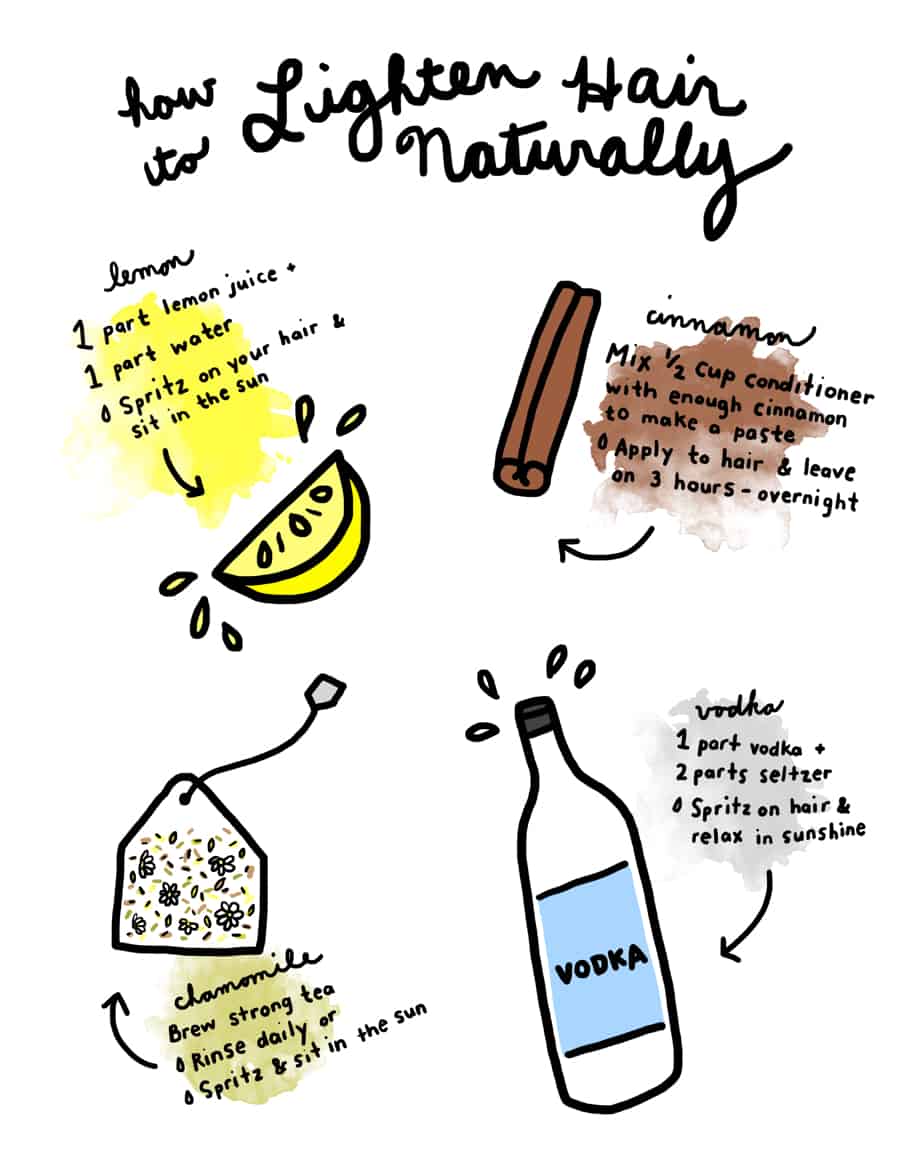 how to Lighten Hair
Naturally
lemon
1 part lemon juice +
1 part water
Spritz on your hair &
sit in the sun
cinnamon
Mix 1/2 cup conditioner
with enough cinnamon
to make a paste
Apply to hair & leave
on 3 hours - overnight
chamomile
Brew strong tea
Rinse daily or
Spritz & sit in the sun
vodka
1 part vodka +
2 parts seltzer
Spritz on hair &
relax in sunshine
VODKA